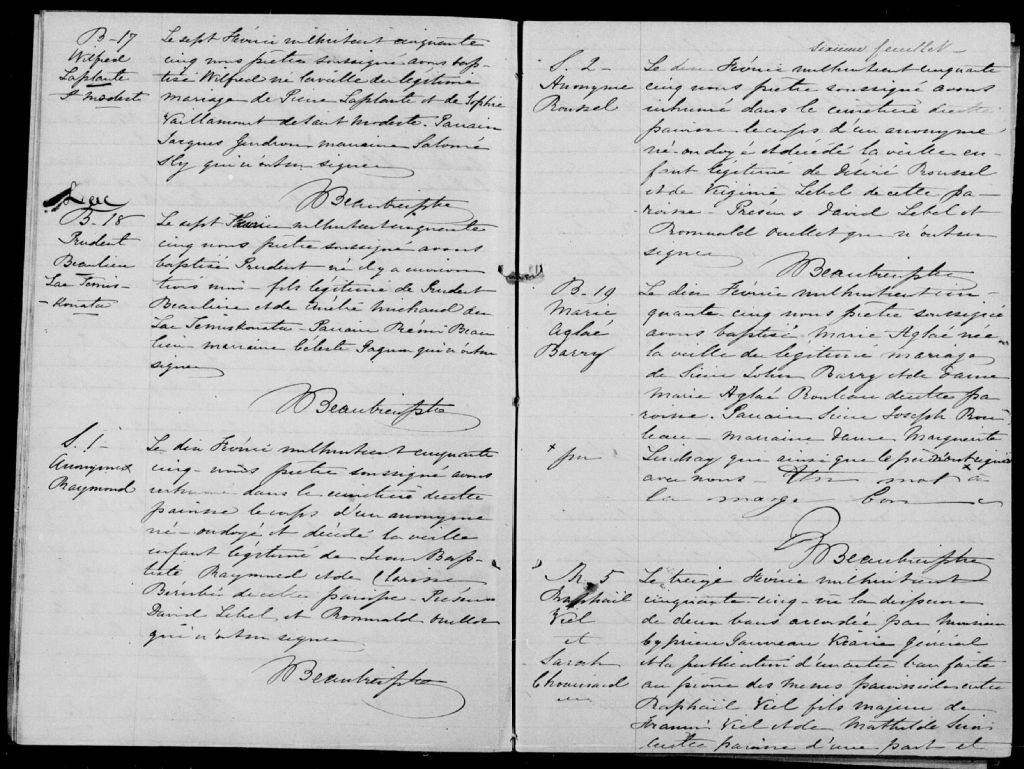 B-17
Wilfred
Laplante
St Modeste
Le sept Février mil huit cent cinquante
cinq nous prêtre soussigné avons bap-
tisé Wilfred né la veille du légitime
mariage de Pierre Laplante et de Sophie
Vaillancourt de saint Modeste. Parrain
Jacques Gendron marraine Salomé
Sly qui n'ont su signer
MBeaubien ptre
Lac
B-18
Prudent
Beaulieu
Lac Temis-
Konata
Le sept Février mil huit cent cinquante
cinq nous prêtre soussigné avons
baptisé Prudent né il y a environ
trois mois - fils légitime de Prudent
Beaulieu et de Amélie Michaud du
Lac Temiskonata Parrain Rémi Beau
lieu marraine Céleste Paquin qui n'ont su
signer
MBeaubien ptre
S. 1-
Anonyme
Raymond
Le dix Février mil huit cent cinquante
cinq - nous prêtre soussigné avons
inhumé dans le cimetière de cette
paroisse le corps d'un anonyme
né - ondoyé et décédé la veille
enfant légitime de Jean Bap-
tiste Raymond et de Clarisse
Bérubé de cette paroisse - Présens
David Lebel et Romuald Ouellet
qui n'ont su signer
MBeaubien ptre
Sixième feuillet -
S. 2 -
Anonyme
Roussel
Le dix Février mil huit cent cinquante
cinq nous prêtre soussigné avons
inhumé dans le cimetière de cette
paroisse le corps d'un anonyme
né ondoyé et décédé la veille en-
fant légitime de Désiré Roussel
et de Virginie Lebel de cette pa-
roisse - Présens David Lebel et
Romuald Ouellet qui n'ont su
signer
MBeaubien ptre
B-19
Marie
Aglaé
Barry
Le dix Février mil huit cent cin-
quante cinq nous prêtre soussigné
avons baptisé Marie Aglaé née
la veille du légitime mariage
de Sieur John Barry et de Dame
Marie Aglaé Rouleau de cette pa
roisse. Parrain Sieur Joseph Rou
leau - Marraine Dame Marguerite
x
Lindsay qui ainsi que le père ont signé
avec nous - Un mot x à
la marge bon
MBeaubien ptre
M. 5
Raphaël
Viel
et
Sarah
Chouinard
Le treize Février mil huit cent
cinquante cinq - vu la dispense
de deux bans accordée par Monsieur
Cyprien Vicaire Général
et la publication d'un autre ban faite
au prône des messes paroissiales entre
Raphaël Viel fils majeur de
Viel et de Mathilde
de cette paroisse d'une part et